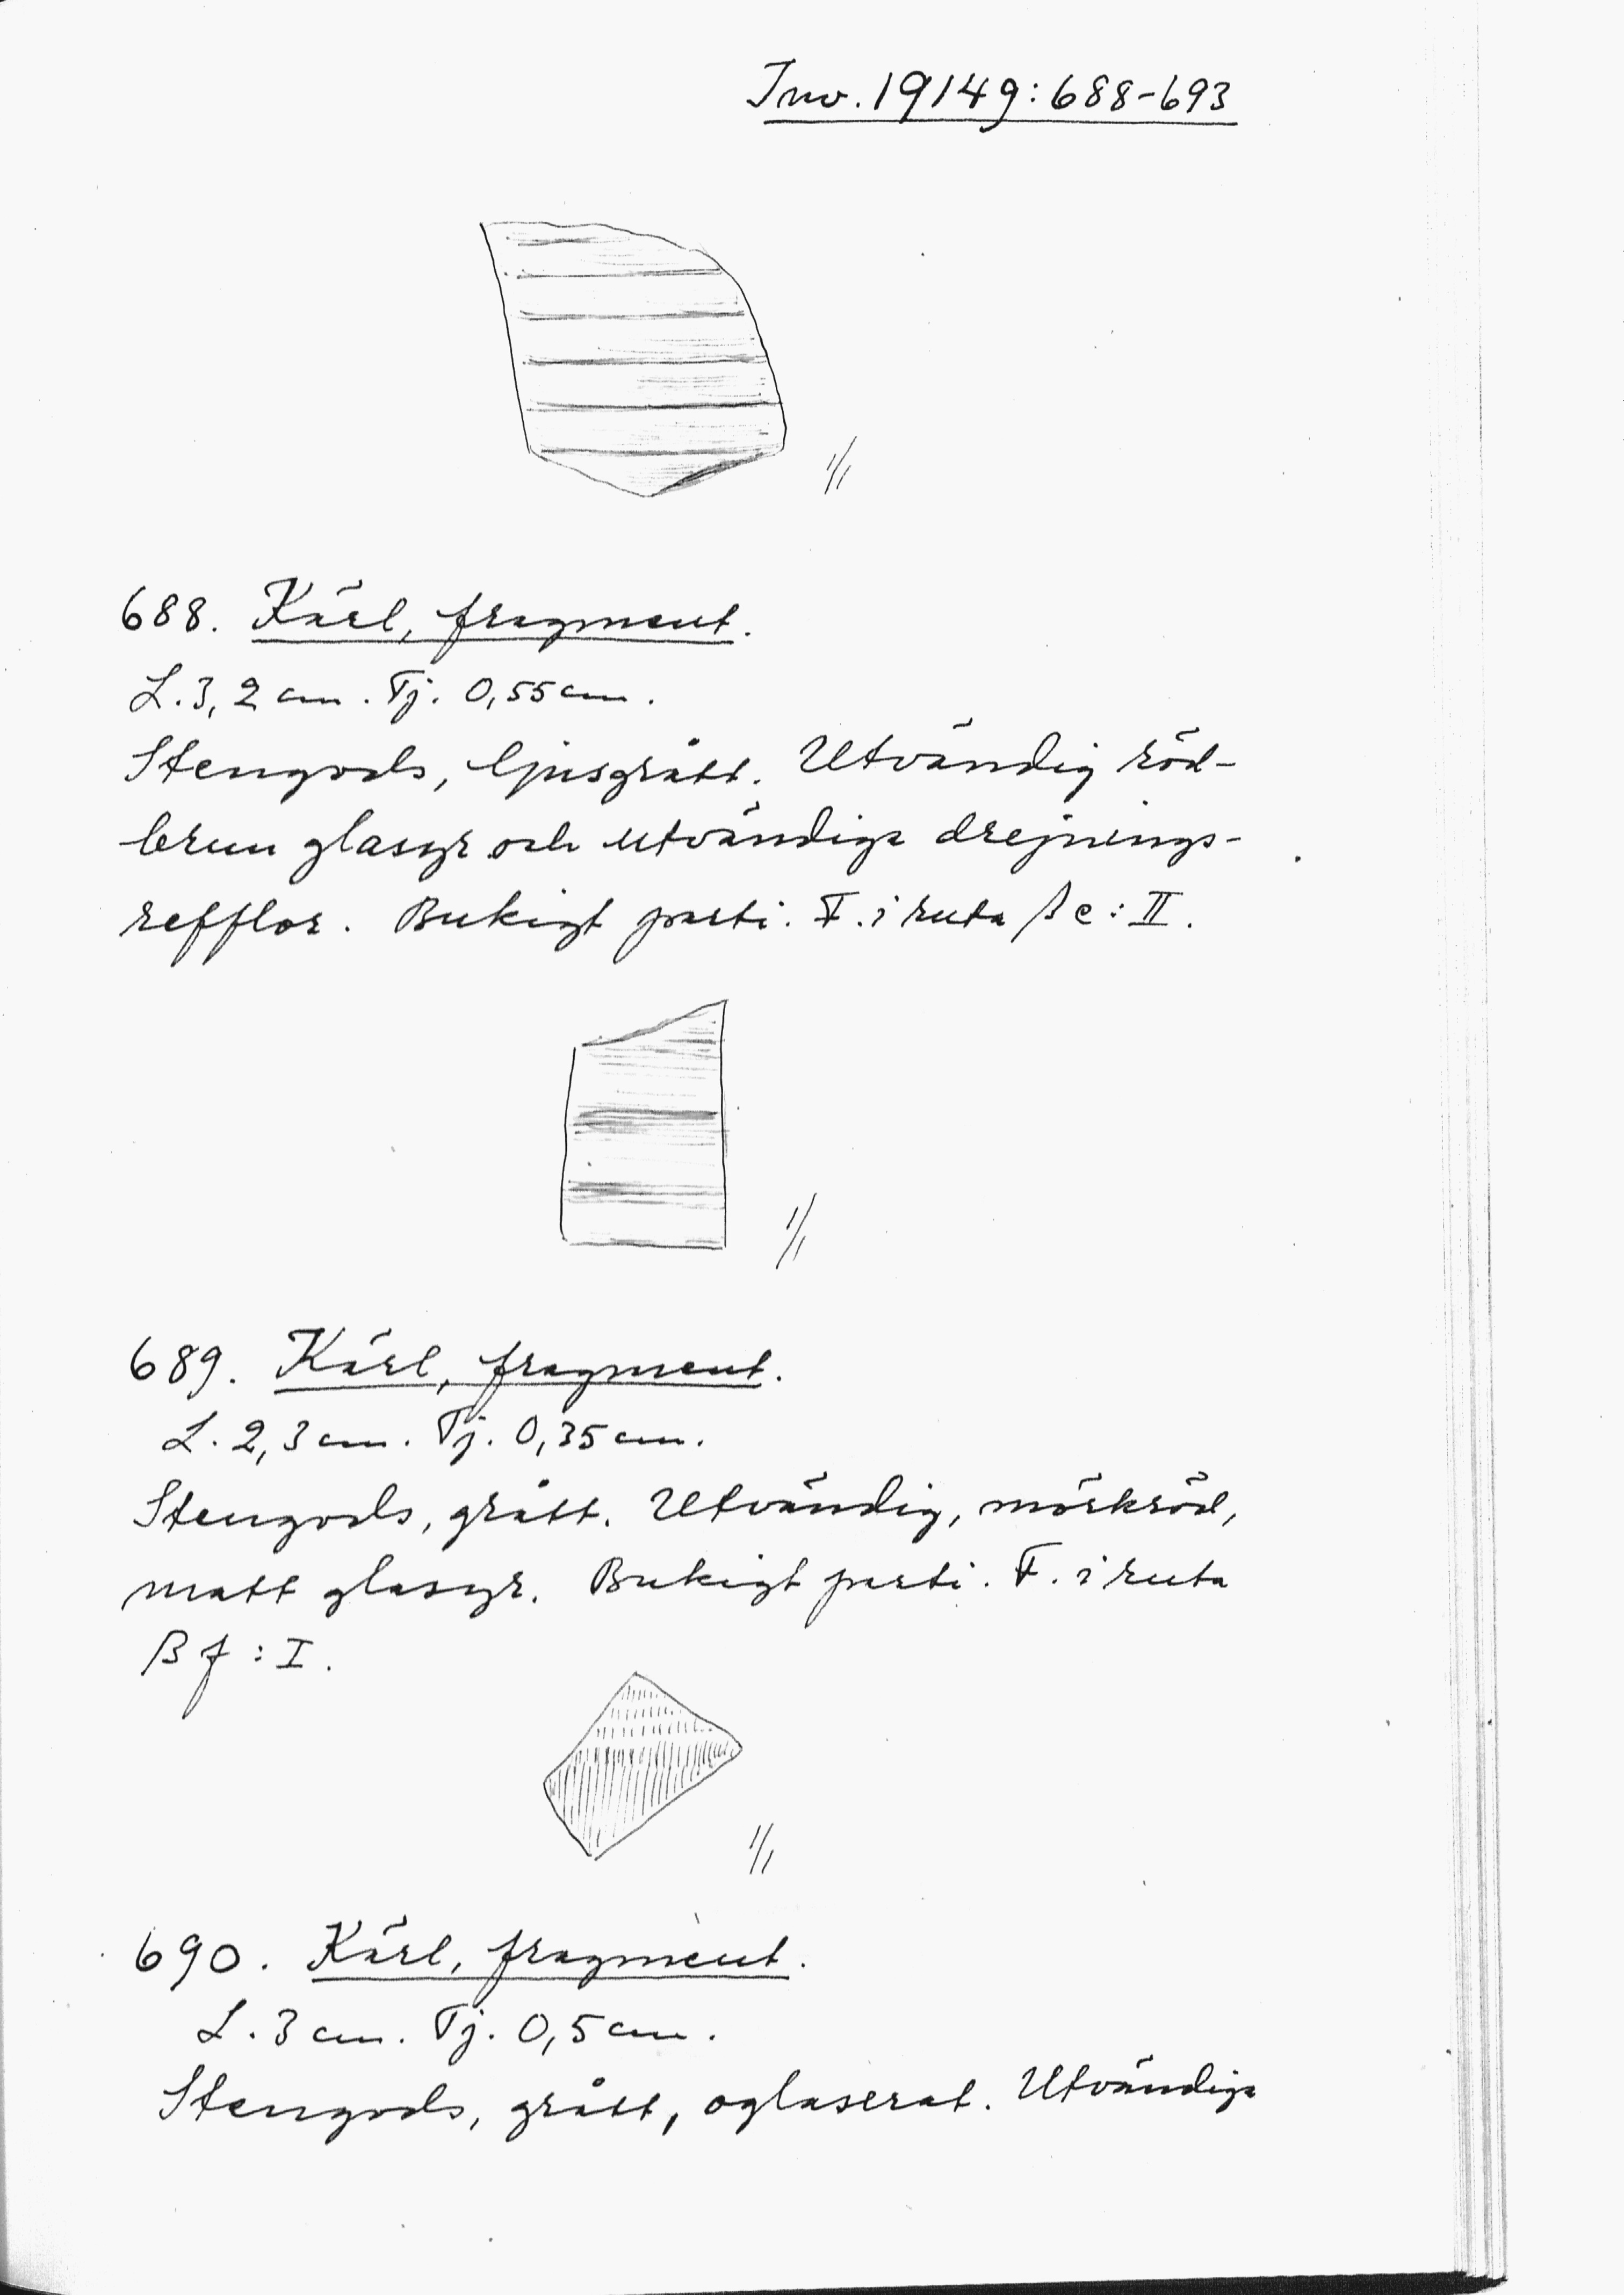 Inv. 19149:688-693
1/1
688. Kärl, fragment.
L. 3,2 cm. Tj. 0,55 cm.
Stengods, ljusgrått. Utvändig röd-
brun glasyr och utvändiga drejnings-
refflor. Bukigt parti. F. i ruta βe:II.
1/1
689. Kärl, fragment.
L. 2,3 cm. Tj. 0,35 cm.
Stengods, grått. Utvändig, mörkröd,
matt glasyr. Bukigt parti. F. i ruta
βf:I.
1/1
690. Kärl, fragment.
L. 3 cm. Tj. 0,5 cm.
Stengods, grått, oglaserat. Utvändiga